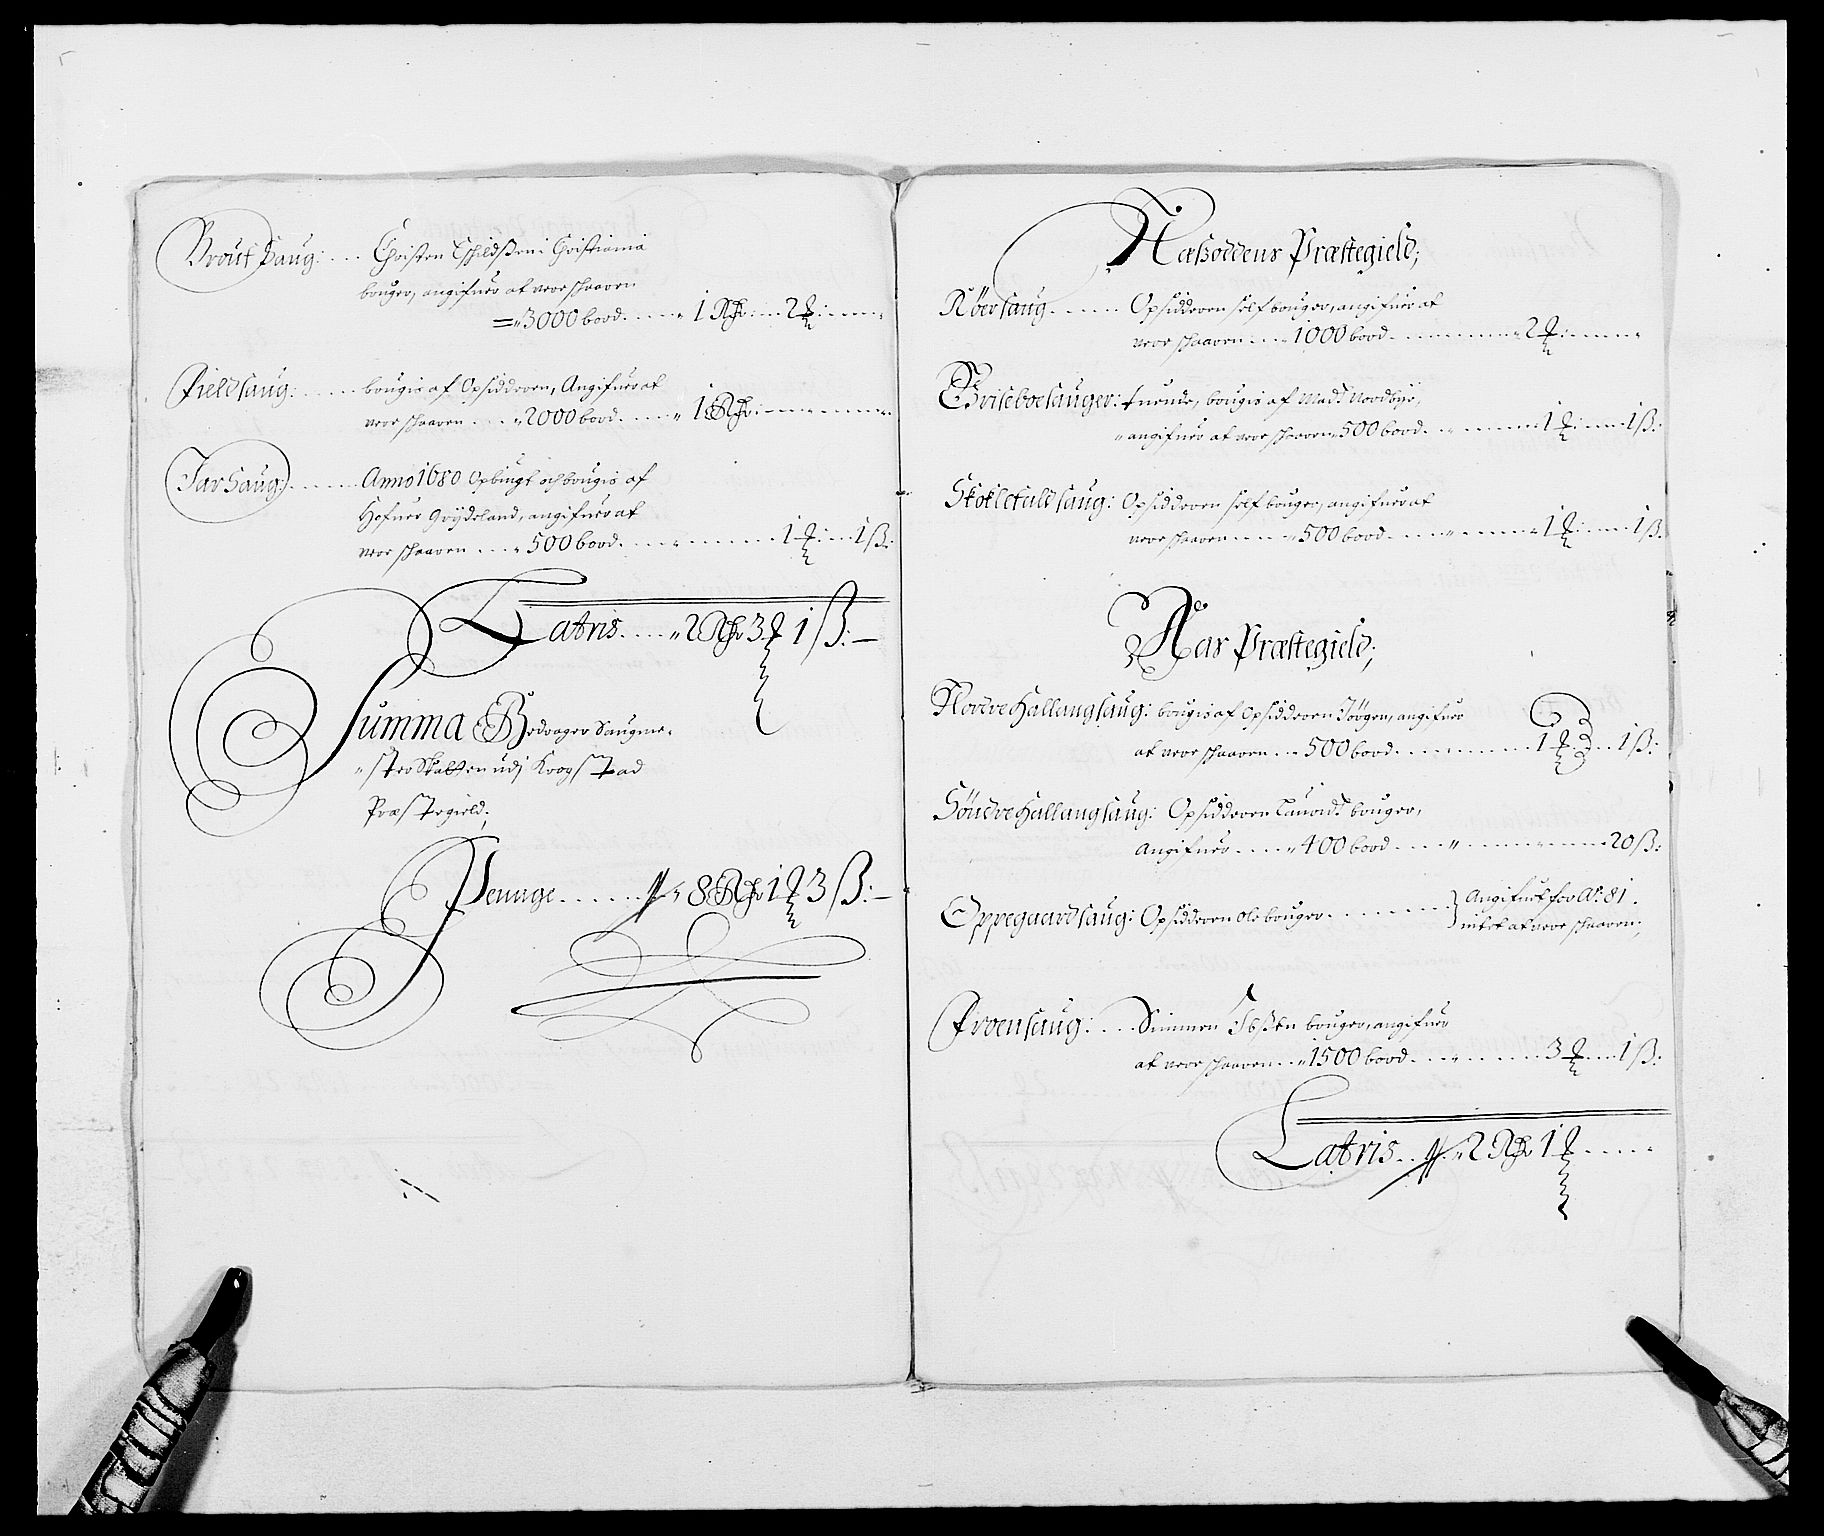 Brout Saug: Christen Eschildßen i Christiania
bruger, angifuer at vere schaaren
3000 bord 1 Rdr 2 ƶ
Field saug: brugis af Opsidderen, Angifuer at
vere schaaren 2000 bord 1 Rdr
Jar Saug: Anno 1680 Opbiugt och brugis af
Hofuer Grøydeland, angifuer at
vere schaaren 500 bord 1 ƶ 1 ß:
Latris 2 Rdr 3 ƶ 1 ß:
Summa Bedrager Saugme-
ster Skatten udj Krogstad
Præstegield;
Penge 8 Rdr 1 ƶ 3 ß:
Næßoddens Præstegield;
Røer saug Opsidderen self bruger, angifuer at
vere schaaren 1000 bord 2 ƶ
Griseboe sauger: tuende, brugis af Madz Nordbye,
angifuer at vere schaaren 500 bord 1 ƶ 1 ß:
Skoklefald saug: Opsidderen self bruger, angifuer at
vere schaaren 500 bord 1 ƶ 1 ß:
Aas Præstegield;
Nordre Hallang saug: brugis af Opsidderen Jörgen, angifuer
at vere schaaren 500 bord 1 ƶ 1 ß:
Söndre Hallang saug: Opsidderen Lauridz bruger,
Angifuer 400 bord 20 ß:
Oppegaard saug: Opsidderen Ole bruger Angifuet for Aō: 81.
intet at vere schaaren;
Froen saug: Simmen Ibßen bruger, angifuer
at vere schaaren 1500 bord 3 ƶ 1 ß:
Latris 2 Rdr 1 ƶ